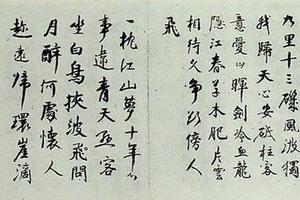 九里十三磯風波獨
我歸天心安砥柱客
意愛山暉劍冷血龍
隱江春子木肥片雲
相待久争影傍人
飛
一枕江山夢十年心
事違青天無客
坐白鳥挾波飛閒
月醉何處懷人
趁遠歸環崖滴